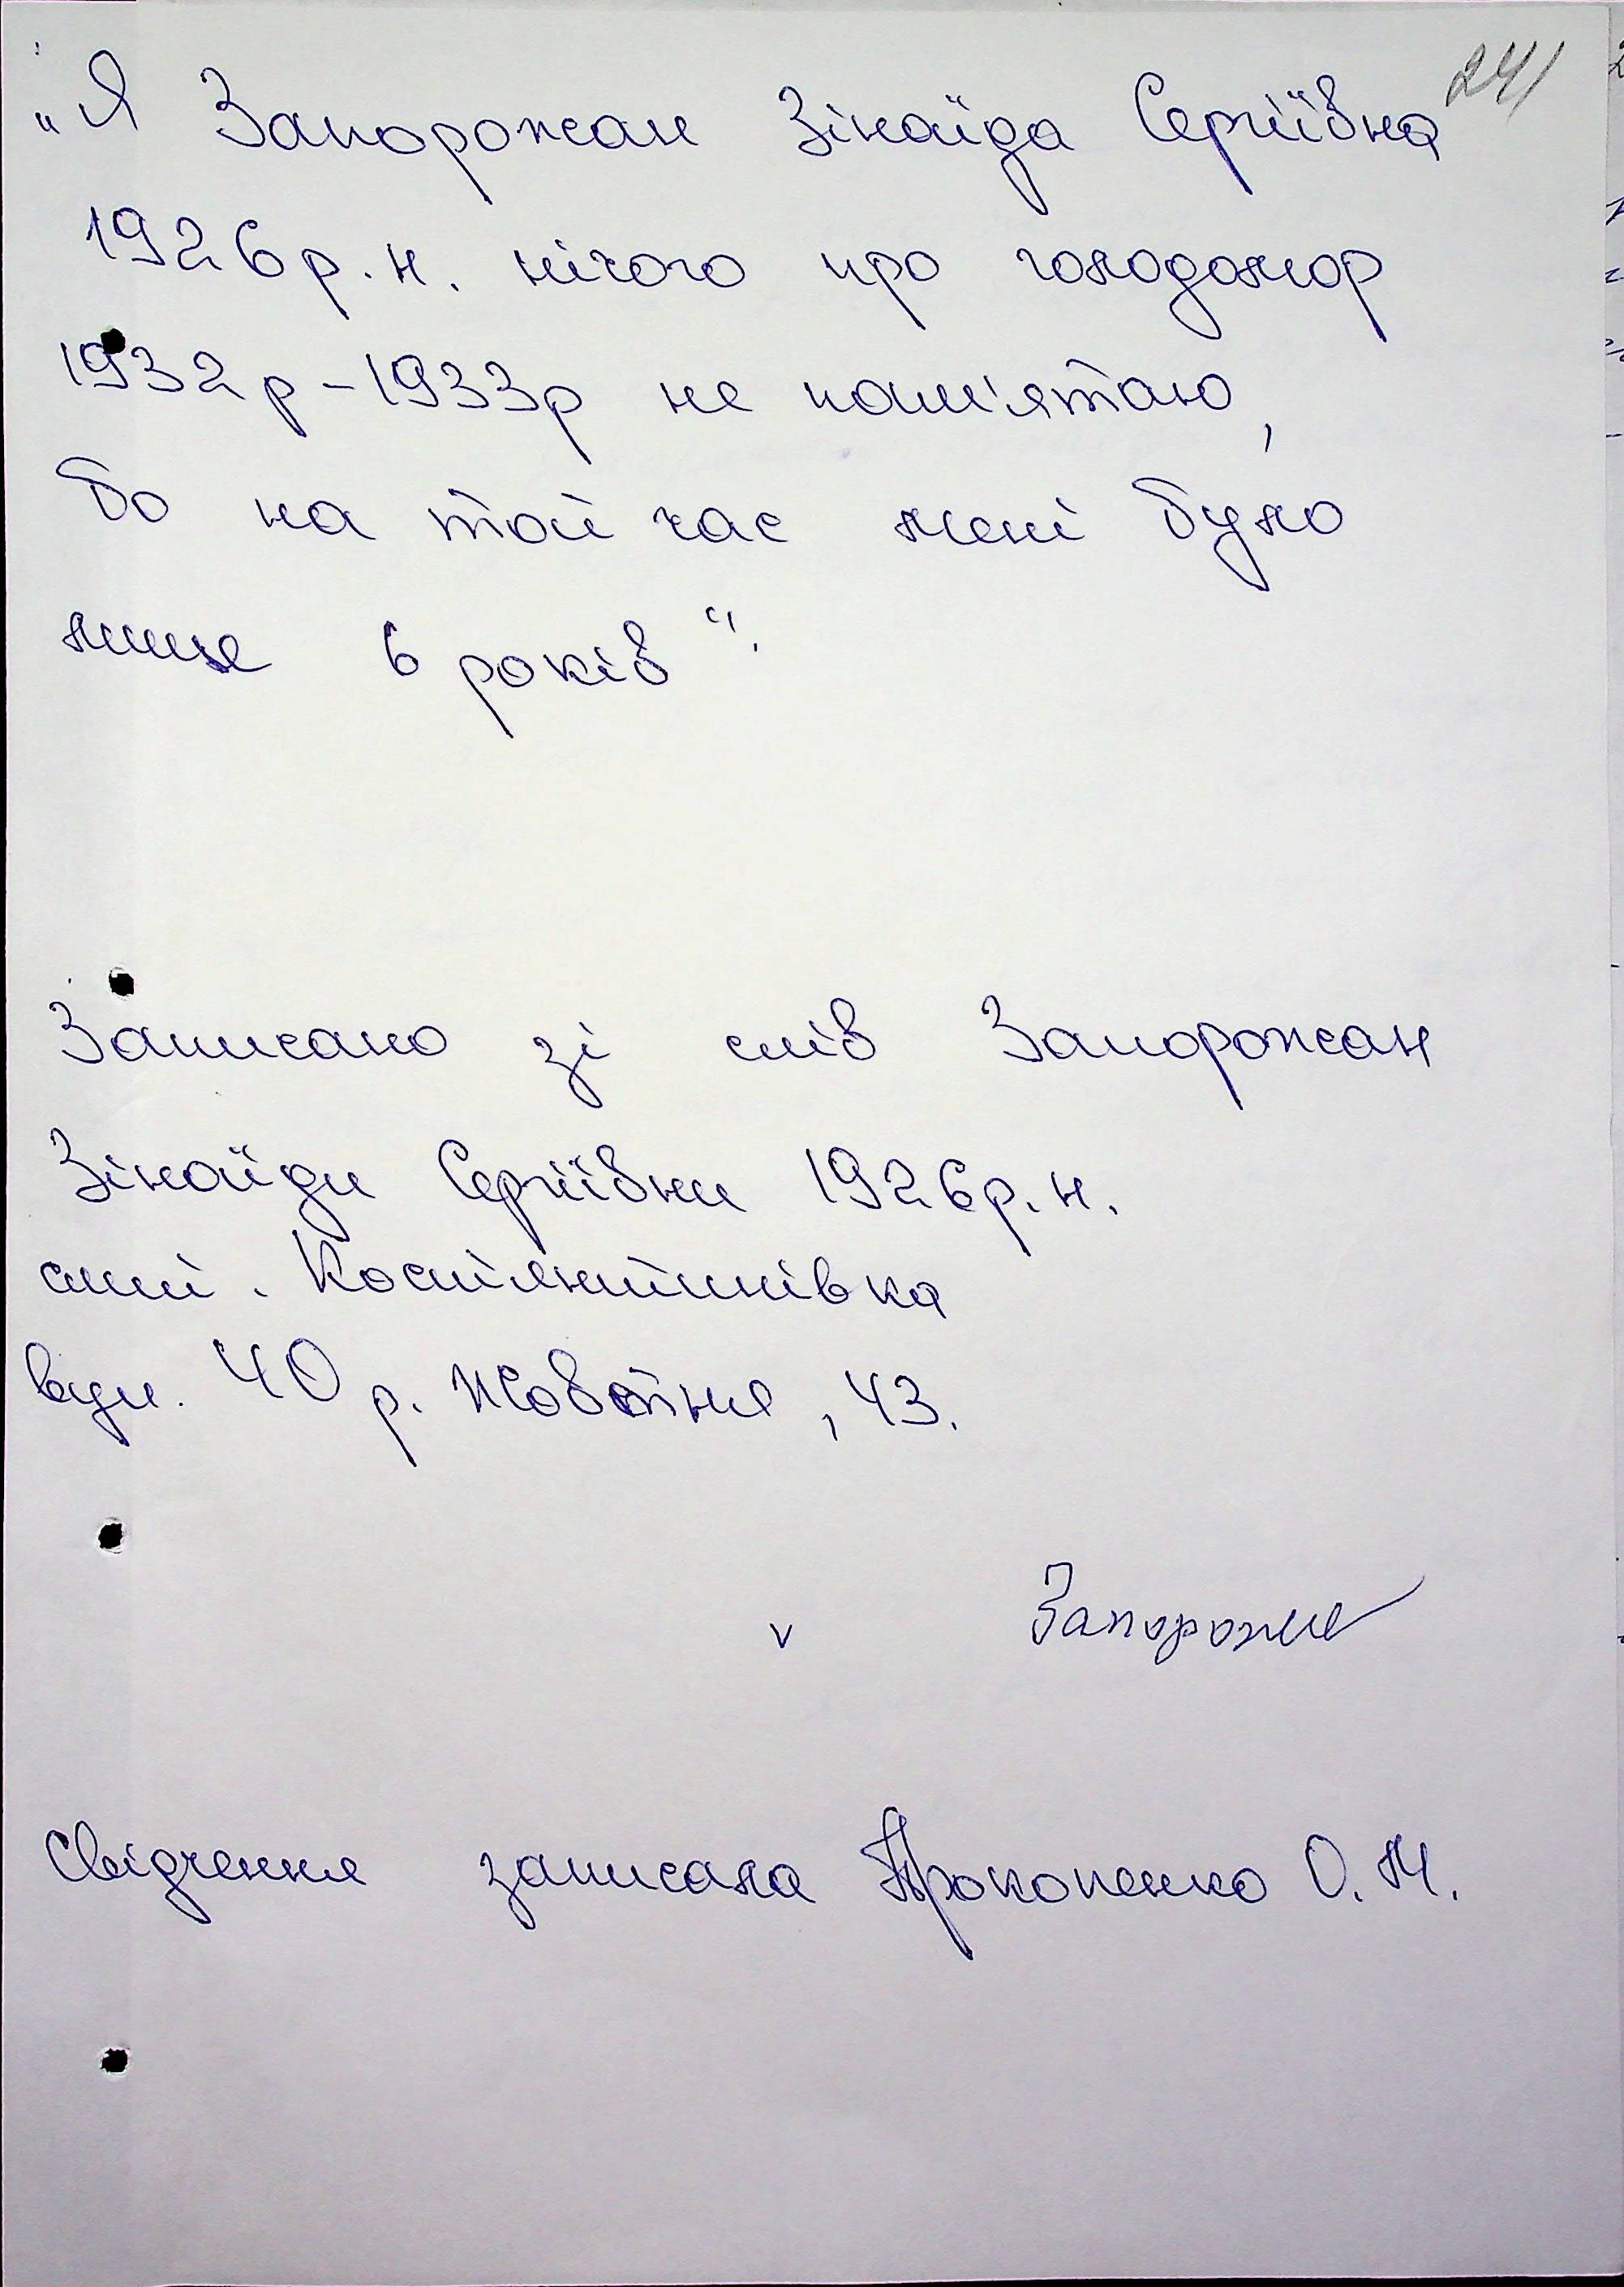 241
„Я Запорожан Зінаїда Сергіївна
1926 р. н. нічого про голодомор
1932р – 1933р не пам'ятаю,
бо на той час мені було
лише 6 років".
Записано зі слів Запорожан
Зінаїди Сергіївни 1926 р. н.
смт.
вул. 40 р. Жовтня, 43.
v Запорожан
Свідчення записала Прокопенко О. М.